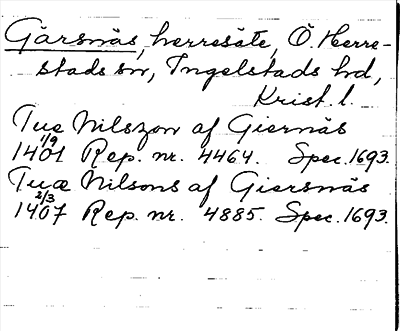 Gärsnäs, herresäte, Ö. Herre-
stads sn, Ingelstads hd,
Krist. l.
Tue Nilszon af Giernäs
1/9
1401 Rep. nr. 4464. Spec. 1693.
Tuæ Nilsons af Giersnäs
2/3
1407 Rep. nr. 4885. Spec. 1693.